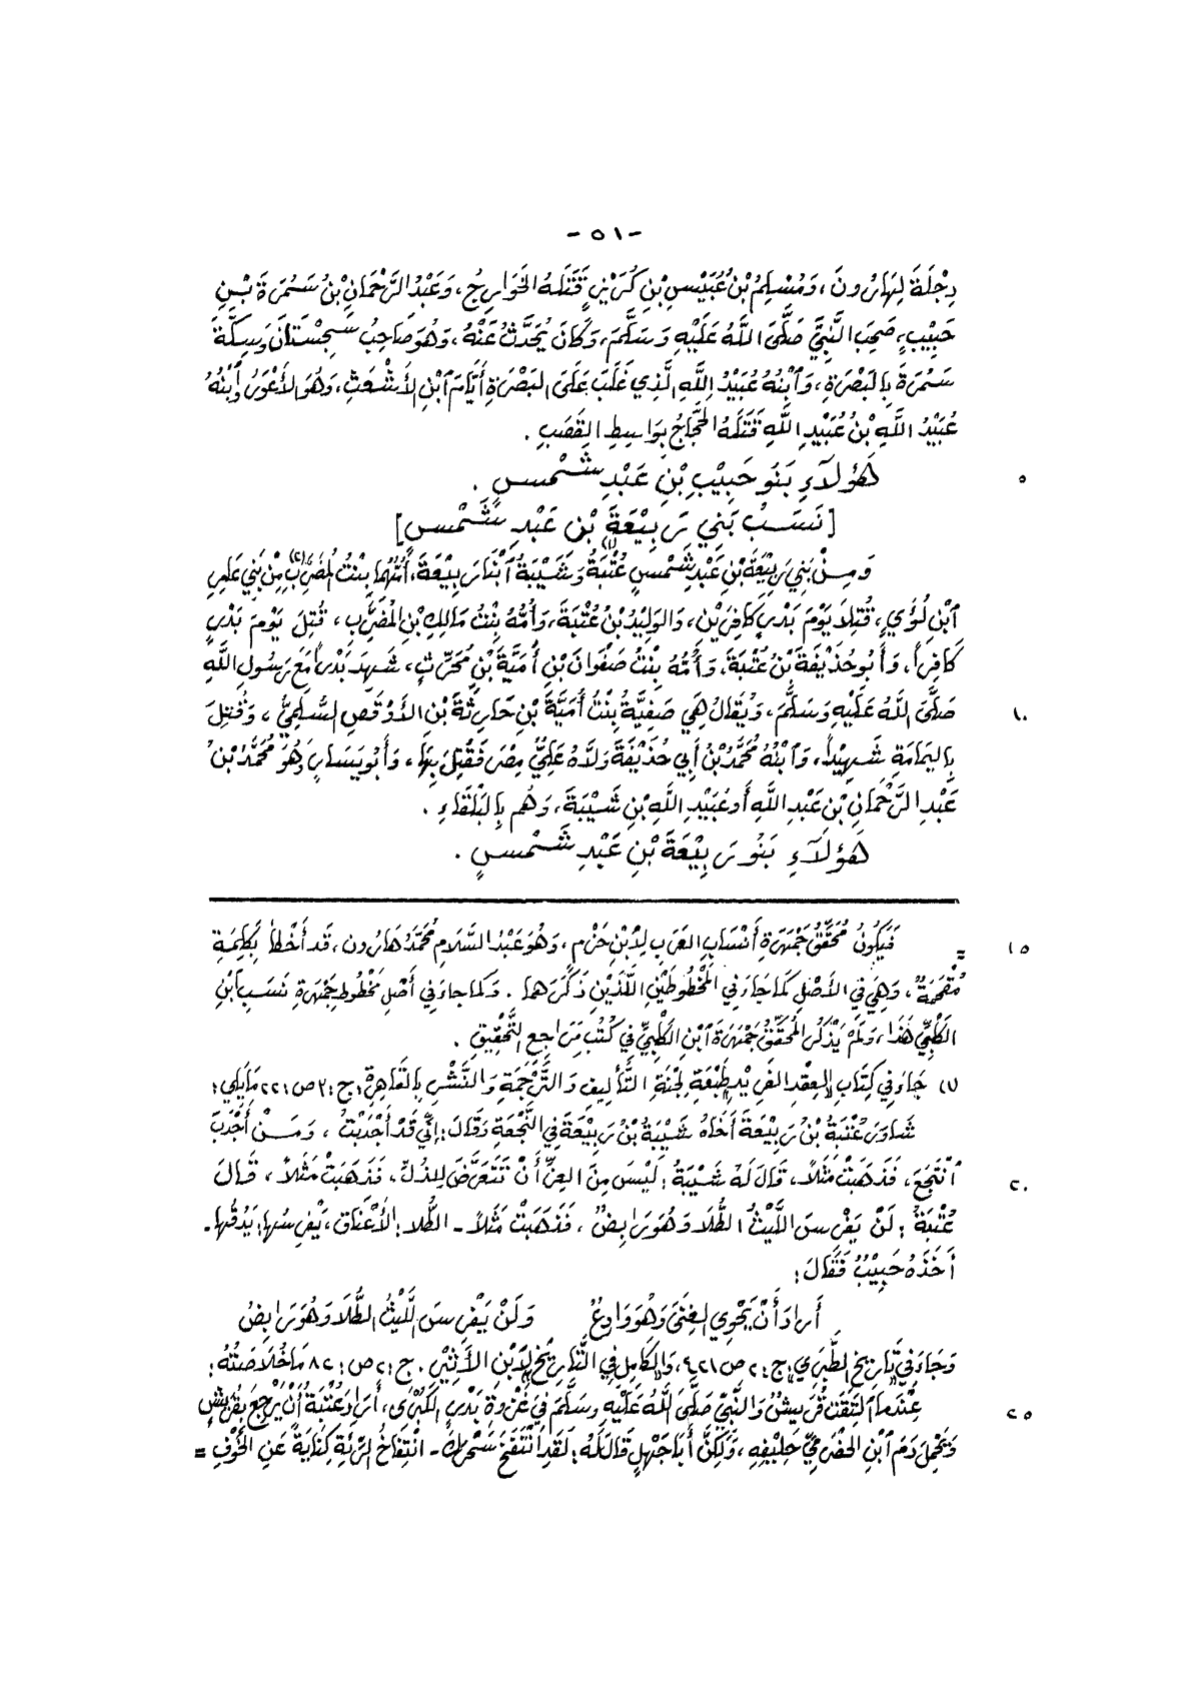 - ٥١ -
دِجْلَةَ لِهَارُونَ، وَمُسْلِمُ بْنُ عُبَيْسِ بنِ كُرَيْزٍ قَتَلَهُ الخَوَارِجُ، وَعَبْدُ الرَّحْمَانِ بْنُ سَمُرَةَ بْنِ
حَبِيْبٍ، صَحِبَ النَّبِيَّ صَلَّى اللَّهُ عَلَيْهِ وَسَلَّمَ، وَكَانَ يُحَدَّثُ عَنْهُ، وَهُوَ صَاحِبُ سِجِسْتَانَ وَسِكَّةَ
سَمُرَةَ بِالبَصْرَةِ، وَٱبْنُهُ عُبَيْدُ اللَّهِ الَّذِي غَلَبَ عَلَى البَصْرَةِ أَيَّامَ ٱبْنِ الأَشْعَثِ، وَهُوَ الأَعْوَرُ وَٱبْنُهُ
عُبَيْدُ اللَّهِ بْنُ عُبَيْدِ اللَّهِ قَتَلَهُ الحَجَّاجُ بِوَاسِطِ القَصَبِ.
هَؤُلَآءِ بَنُو حَبِيْبِ بْنِ عَبْدِ شَمْسٍ. ٥
[نَسَبُ بَنِي رَبِيْعَةَ بْنِ عَبْدِ شَمْسٍ]
وَمِنْ بَنِي رَبِيْعَةَ بْنِ عَبْدِ شَمْسٍ عُتْبَةُ (١) وَشَيْبَةُ ٱبْنَا رَبِيْعَةَ، أُمُّهُمَا بِنْتُ المُضَرِّبِ (٢) مِنْ بَنِي عَامِرِ
ٱبْنِ لُؤَيٍ، قُتِلَا يَوْمَ بَدْرٍ كَافِرَيْنِ، وَالوَلِيْدُ بْنُ عُتْبَةَ، وَأُمُّهُ بِنْتُ مَالِكِ بْنِ المُضَرِّبِ، قُتِلَ يَوْمَ بَدْرٍ
كَافِراً، وَأَبُو حُذَيْفَةَ بْنُ عُتْبَةَ، وَأُمُّهُ بِنْتُ صَفْوَانَ بْنِ أُمَيَّةَ بْنِ مُحَرِّثٍ، شَهِدَ بَدْراً مَعَ رَسُولِ اللَّهِ
صَلَّى اللَّهُ عَلَيْهِ وَسَلَّمَ، وَيُقَالُ هِيَ صَفِيَّةُ بِنْتُ أُمَيَّةَ بْنِ حَارِثَةَ بْنِ الأَوْقَصِ السُّلَمِيُّ، وَقُتِلَ ١٠
بِاليَمَامَةِ شَهِيْداً، وَٱبْنُهُ مُحَمَّدُ بْنُ أَبِي حُذَيْفَةَ وَلَّاهُ عَلِيٌّ مِصْرَ فَقُتِلَ بِهَا، وَأَبُو يَسَارٍ وَهُوَ مُحَمَّدُ بْنُ
عَبْدِ الرَّحْمَانِ بْنِ عَبْدِ اللَّهِ أَو عُبَيْدِ اللَّهِ بْنِ شَيْبَةَ، وَهُم بِالبَلْقَاءِ.
هَؤُلَآءِ بَنُو رَبِيْعَةَ بْنِ عَبْدِ شَمْسٍ.
= فَيَكُونُ مُحَقِّقُ جَمْهَرَةِ أَنْسَابِ العَرَبِ لِابْنِ حَزْمٍ، وَهُوَ عَبْدُ السَّلَامِ مُحَمَّدُ هَارُون، قَد أَخْطَأَ بِكَلِمَةِ ١٥
مُقْحَمَةٌ، وَهِيَ فِي الأَصْلِ كَمَا جَاءَ فِي المَخْطُوطَيْنِ اللَّذَيْنِ ذَكَرَهمَا. وَكمَا جاءَ فِي أَصْلِ مَخْطُوطِ جَمْهَرَةِ نَسَبِ ابْنِ
الكَلْبِيِّ هَذَا، وَلَمْ يَذْكُرِ المُحَقِّقُ جَمْهَرَةَ ٱبْنِ الكَلْبِيِّ فِي كُتُبِ مَرَاجِعِ التَّحْقِيقِ.
(١) جَاءَ فِي كِتَابِ العِقْدِ الفَرِيْدِ طَبْعَةِ لَجْنَةِ التَّأْلِيفِ وَالتَّرْجَمَةِ وَالنَّشْرِ بِالقَاهِرَةِ: ج: ٣ ص: ٢٢ مَا يَلِي:
شَاوَرَ عُتْبَةُ بْنُ رَبِيْعَةَ أَخَاهُ شَيْبَةَ بْنُ رَبِيْعَةَ فِي النُّجْعَةِ وَقَالَ: إِنِّي قَدْ أَجْدَبْتُ، وَمَنْ أَجْدَبَ
ٱنْتَجَعَ، فَذَهَبَتْ مَثَلاً، قَالَ لَهُ شَيْبَةُ: لَيْسَ مِنَ العِزِّ أَنْ تَتَعَرَّضَ لِلذُّلِّ، فَذَهَبَتْ مَثَلاً، قَالَ ٢٠
عُتْبَةُ: لَنْ يَفْرِسَ اللَّيْثُ الطُّلَا وَهُوَ رَابِضٌ، فَذَهَبَتْ مَثَلاً - الطُّلَا: الأَعْنَاق، يَفْرِسُهَا: يَدُقُّهَا -
أَخَذَهُ حَبِيْبٌ فَقَالَ:
أَرَادَ أَنْ يَحْوِي الغِنَى وَهُوَ وَادِعٌ وَلَنْ يَفْرِسَ اللَّيْثُ الطُّلَا وَهُوَ رَابِضُ
وَجَاءَ فِي تَارِيخِ الطَّبَرِي: ج: ٢ ص: ٤٢١، وَالكَامِلِ فِي التَّارِيْخِ لِابْنِ الأَثِيْرِ. ج: ٢ ص: ٨٢ مَا خُلَاصَتُهُ:
عِنْدَمَا التَقَت قُرَيشٌ وَالنَّبِيِّ صَلَّى اللَّهُ عَلَيْهِ وسَلَّمَ فِي غَزْوَةِ بَدْرٍ الكُبْرَى، أَرَادَ عُتْبَةُ أَنْ يَرْجِعَ بِقُرَيْشٍ ٢٥
وَيَحْمِلَ دَمَ ٱبْنِ الحَضْرَمِيِّ حَلِيْفِهِ، وَلَكِنَّ أَبَا جَهْلٍ قَالَ لَهُ: لَقَدِ ٱنْتَفَخَ سَحْرُكَ - انْتِفَاخُ الرِّئَةِ كِنَايَةً عَنِ الخَوْفِ =